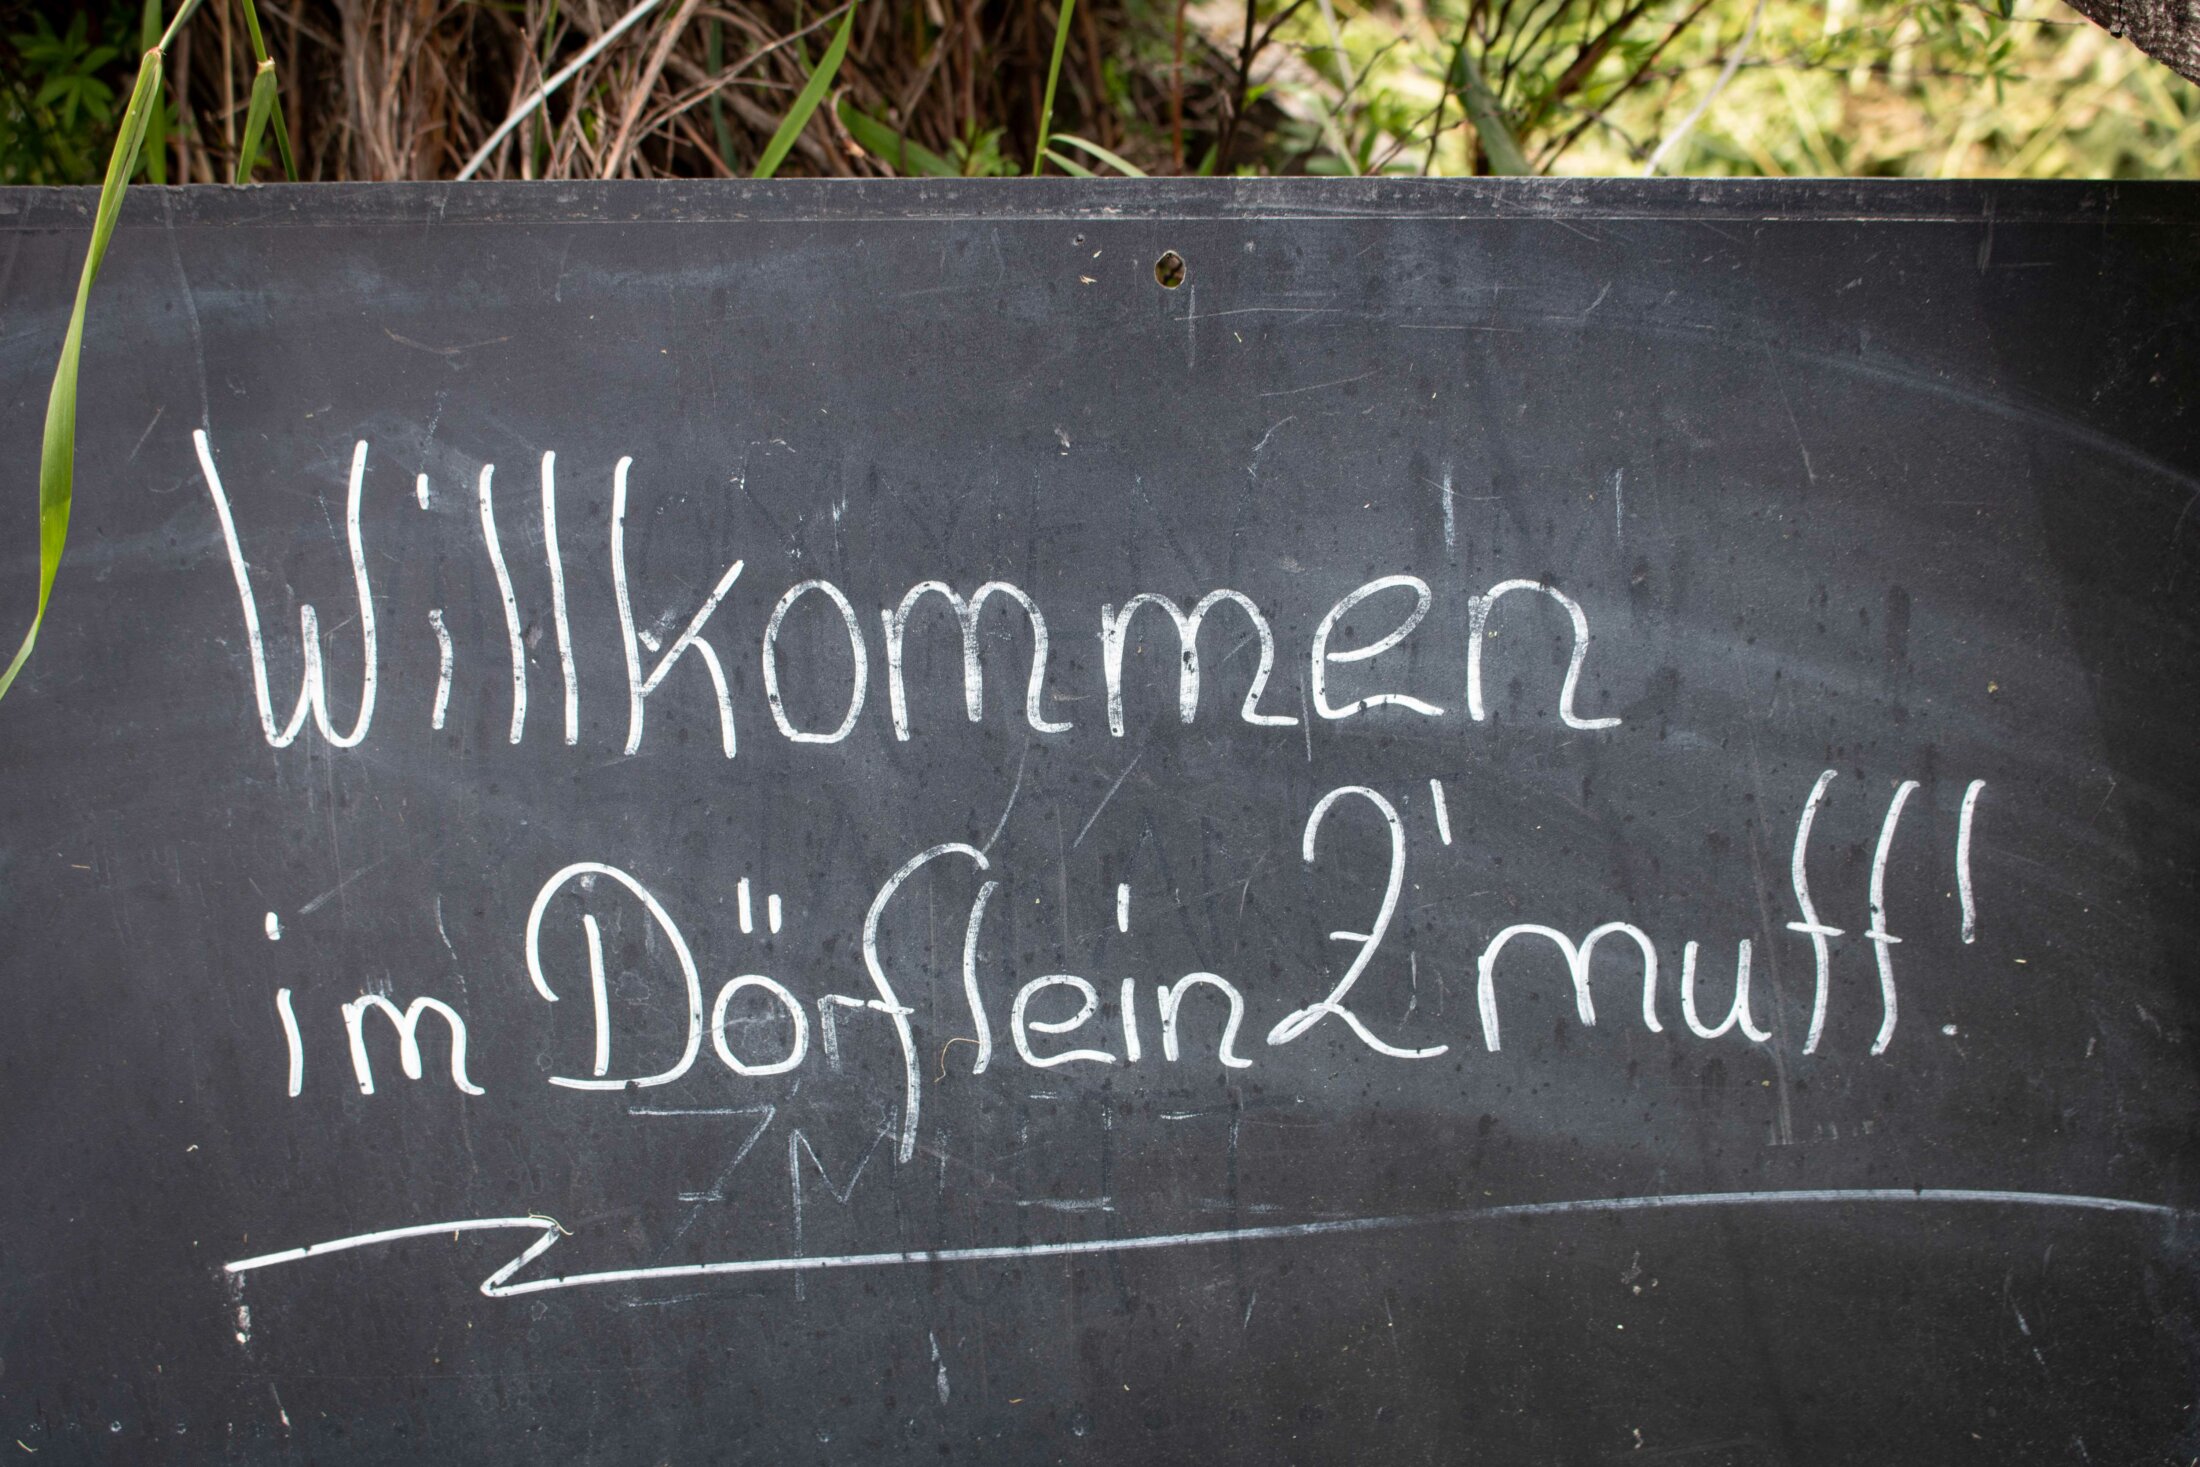 Willkommen
im Dörflein Z'muff!